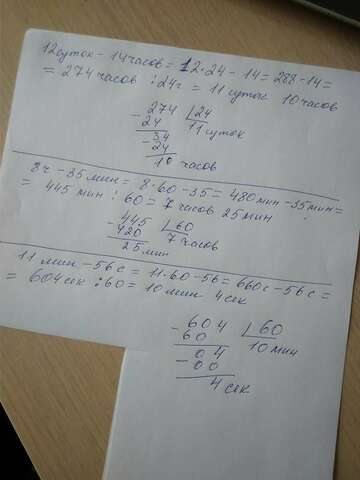 12суток - 14часов = 12·24 - 14 = 288 - 14 =
= 274 часов : 24ч = 11 суток 10 часов
- 274 | 24
24 11 суток
- 34
24
10 часов
8ч - 35 мин = 8·60 - 35 = 480мин - 35мин =
= 445 мин : 60 = 7 часов 25мин
- 445 | 60
420 7 часов
25 мин
11 мин - 56 с = 11·60 - 56 = 660с - 56с =
= 604сек : 60 = 10мин 4сек
- 604 | 60
60 10мин
- 04
00
4 сек